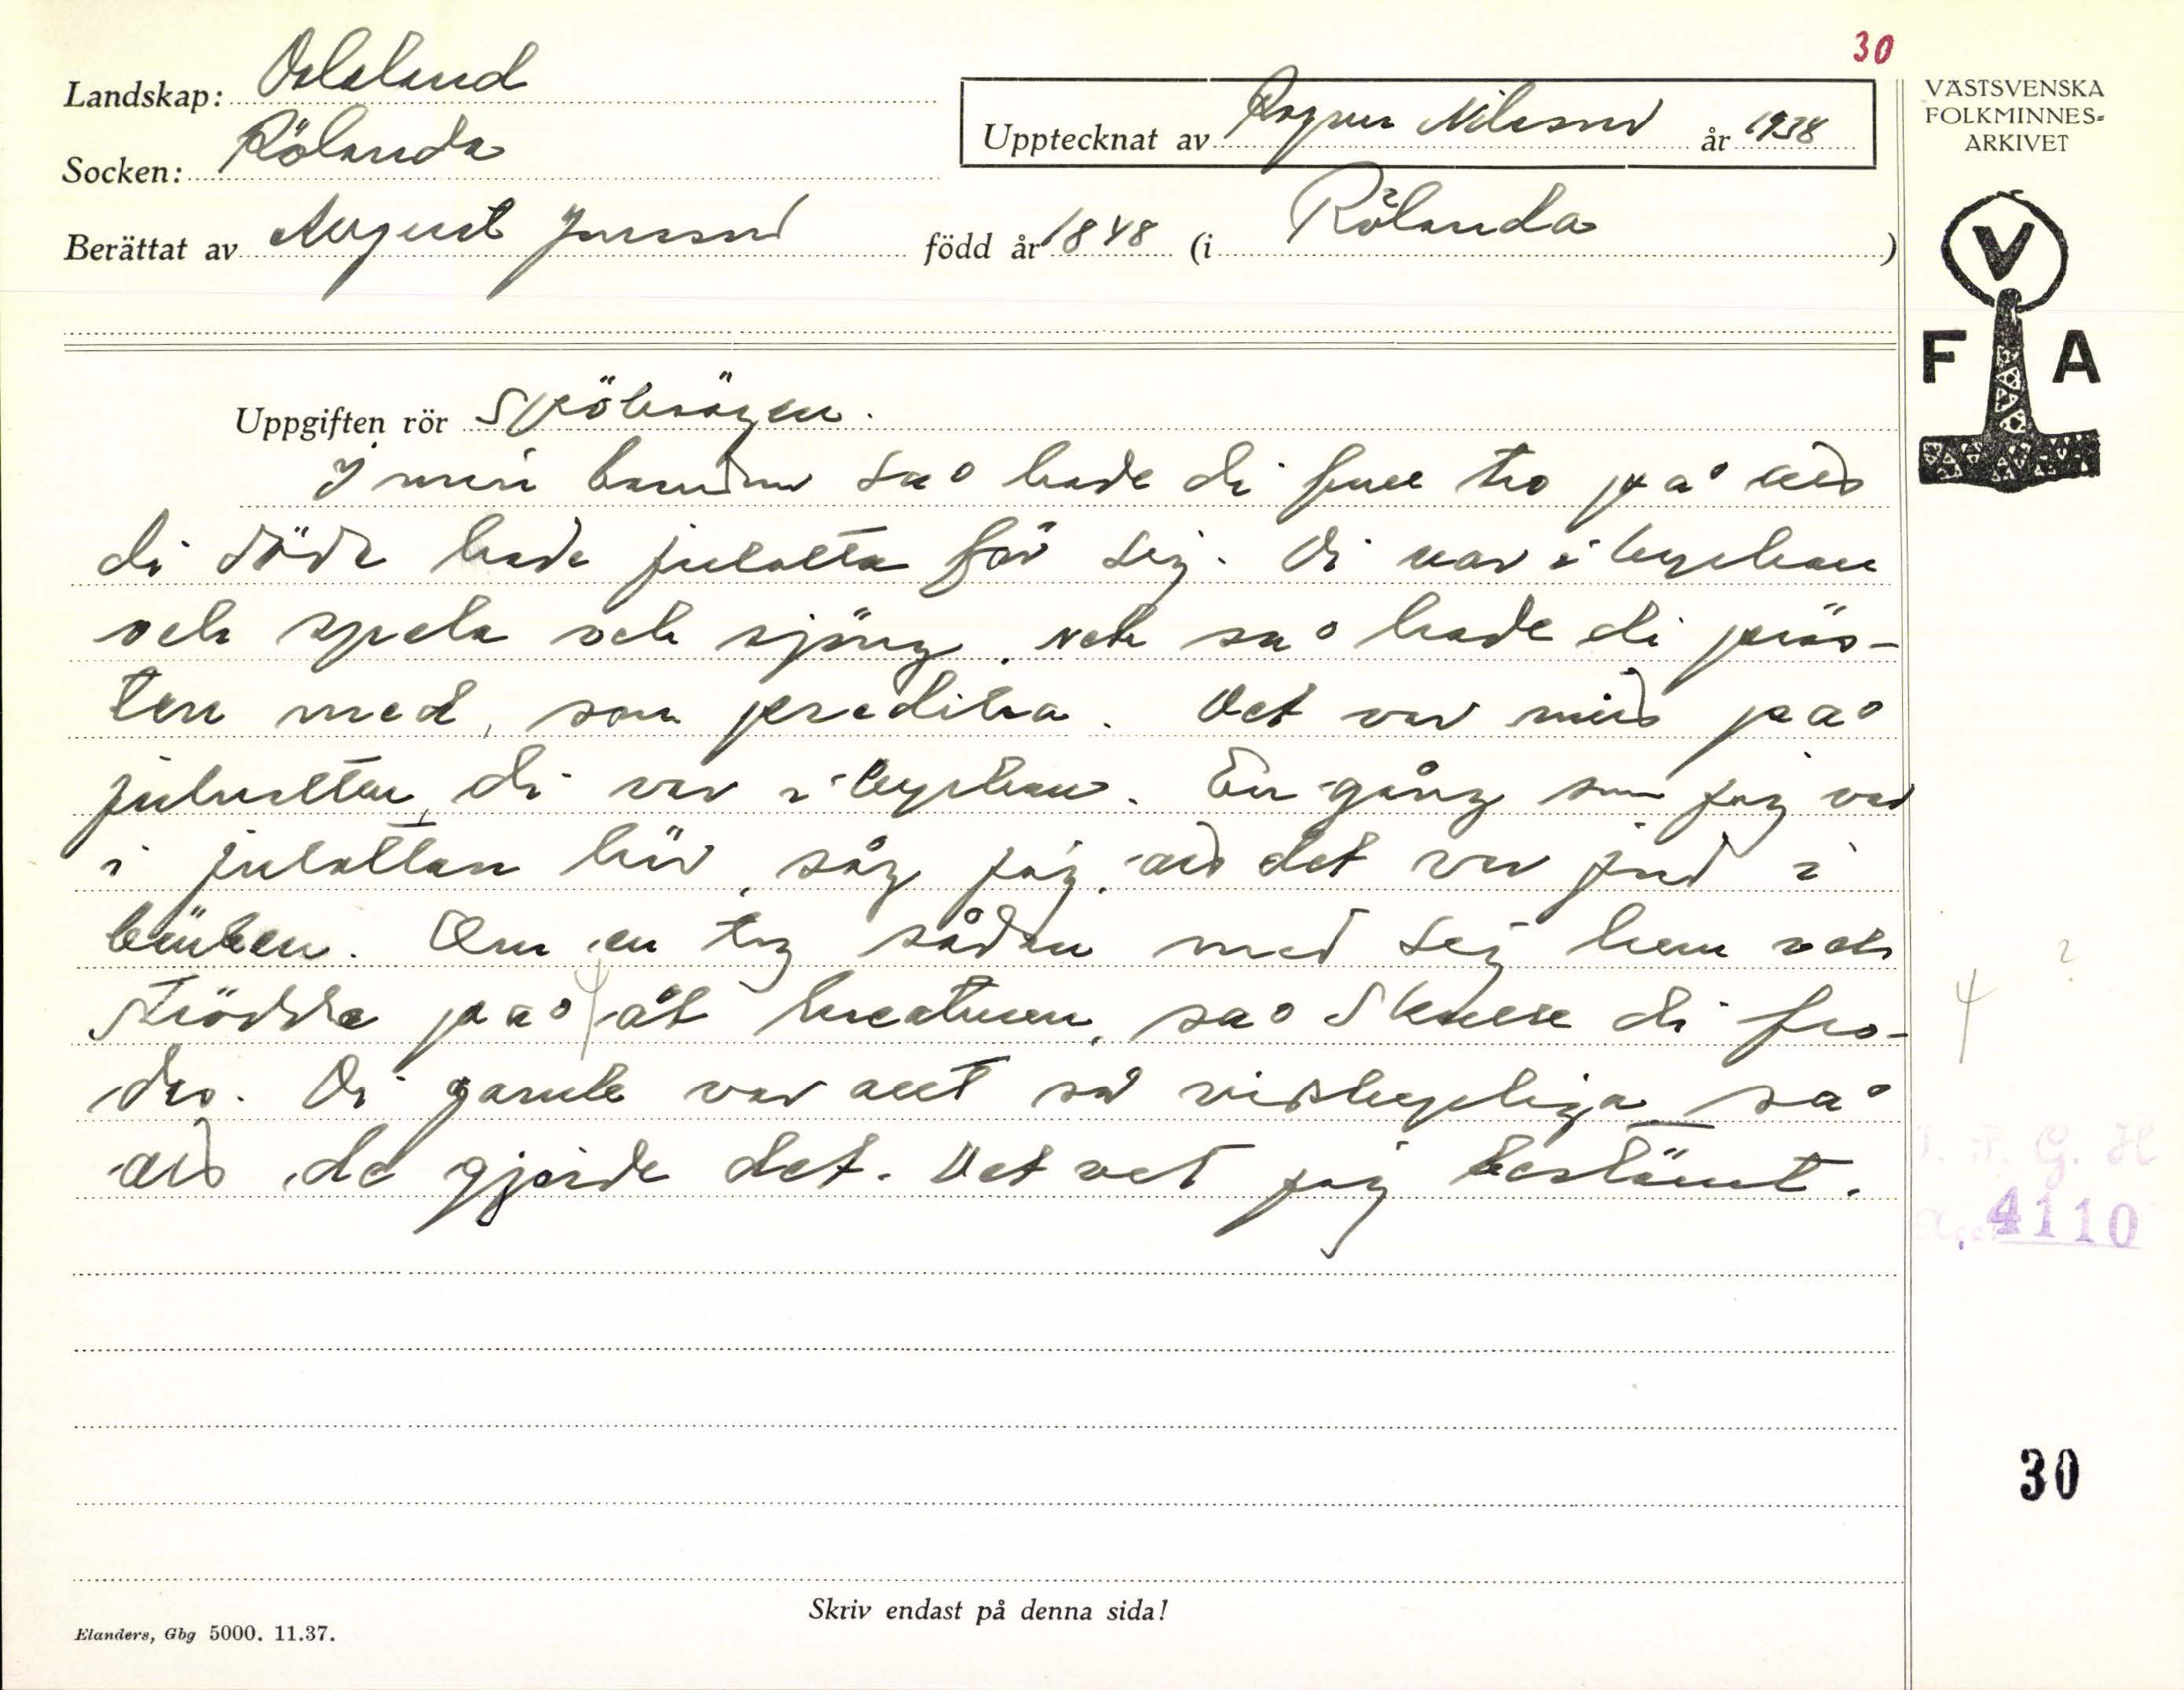 30
Landskap: Dalsland
Socken: Rölanda
Upptecknat av Ragnar Nilsson år 1938
Berättat av August Jonsson född år 1848 (i Rölanda)
VÄSTSVENSKA
FOLKMINNES-
ARKIVET
V
F A
Uppgiften rör Spöksägen.
I min barndom så hade di full tro på att
di döde hade julotta för sig. Di var i kyrkan
och spela och sjöng, och så hade di präs-
ten med, som predika. Det var mitt på
julnatten, di var i kyrkan. En gång som jag var
i julottan här, såg jag, att det var jord i
bänken. Om en tog sådan med sig hem och
strödde på åt kreaturen, så skulle di fro-
das. Di gamle var allt så vidskepliga så
att de gjorde det. Det vet jag bestämt.
4 ?
I. F. G. H
Acc. 4110
30
Skriv endast på denna sida!
Elanders, Gbg 5000. 11.37.